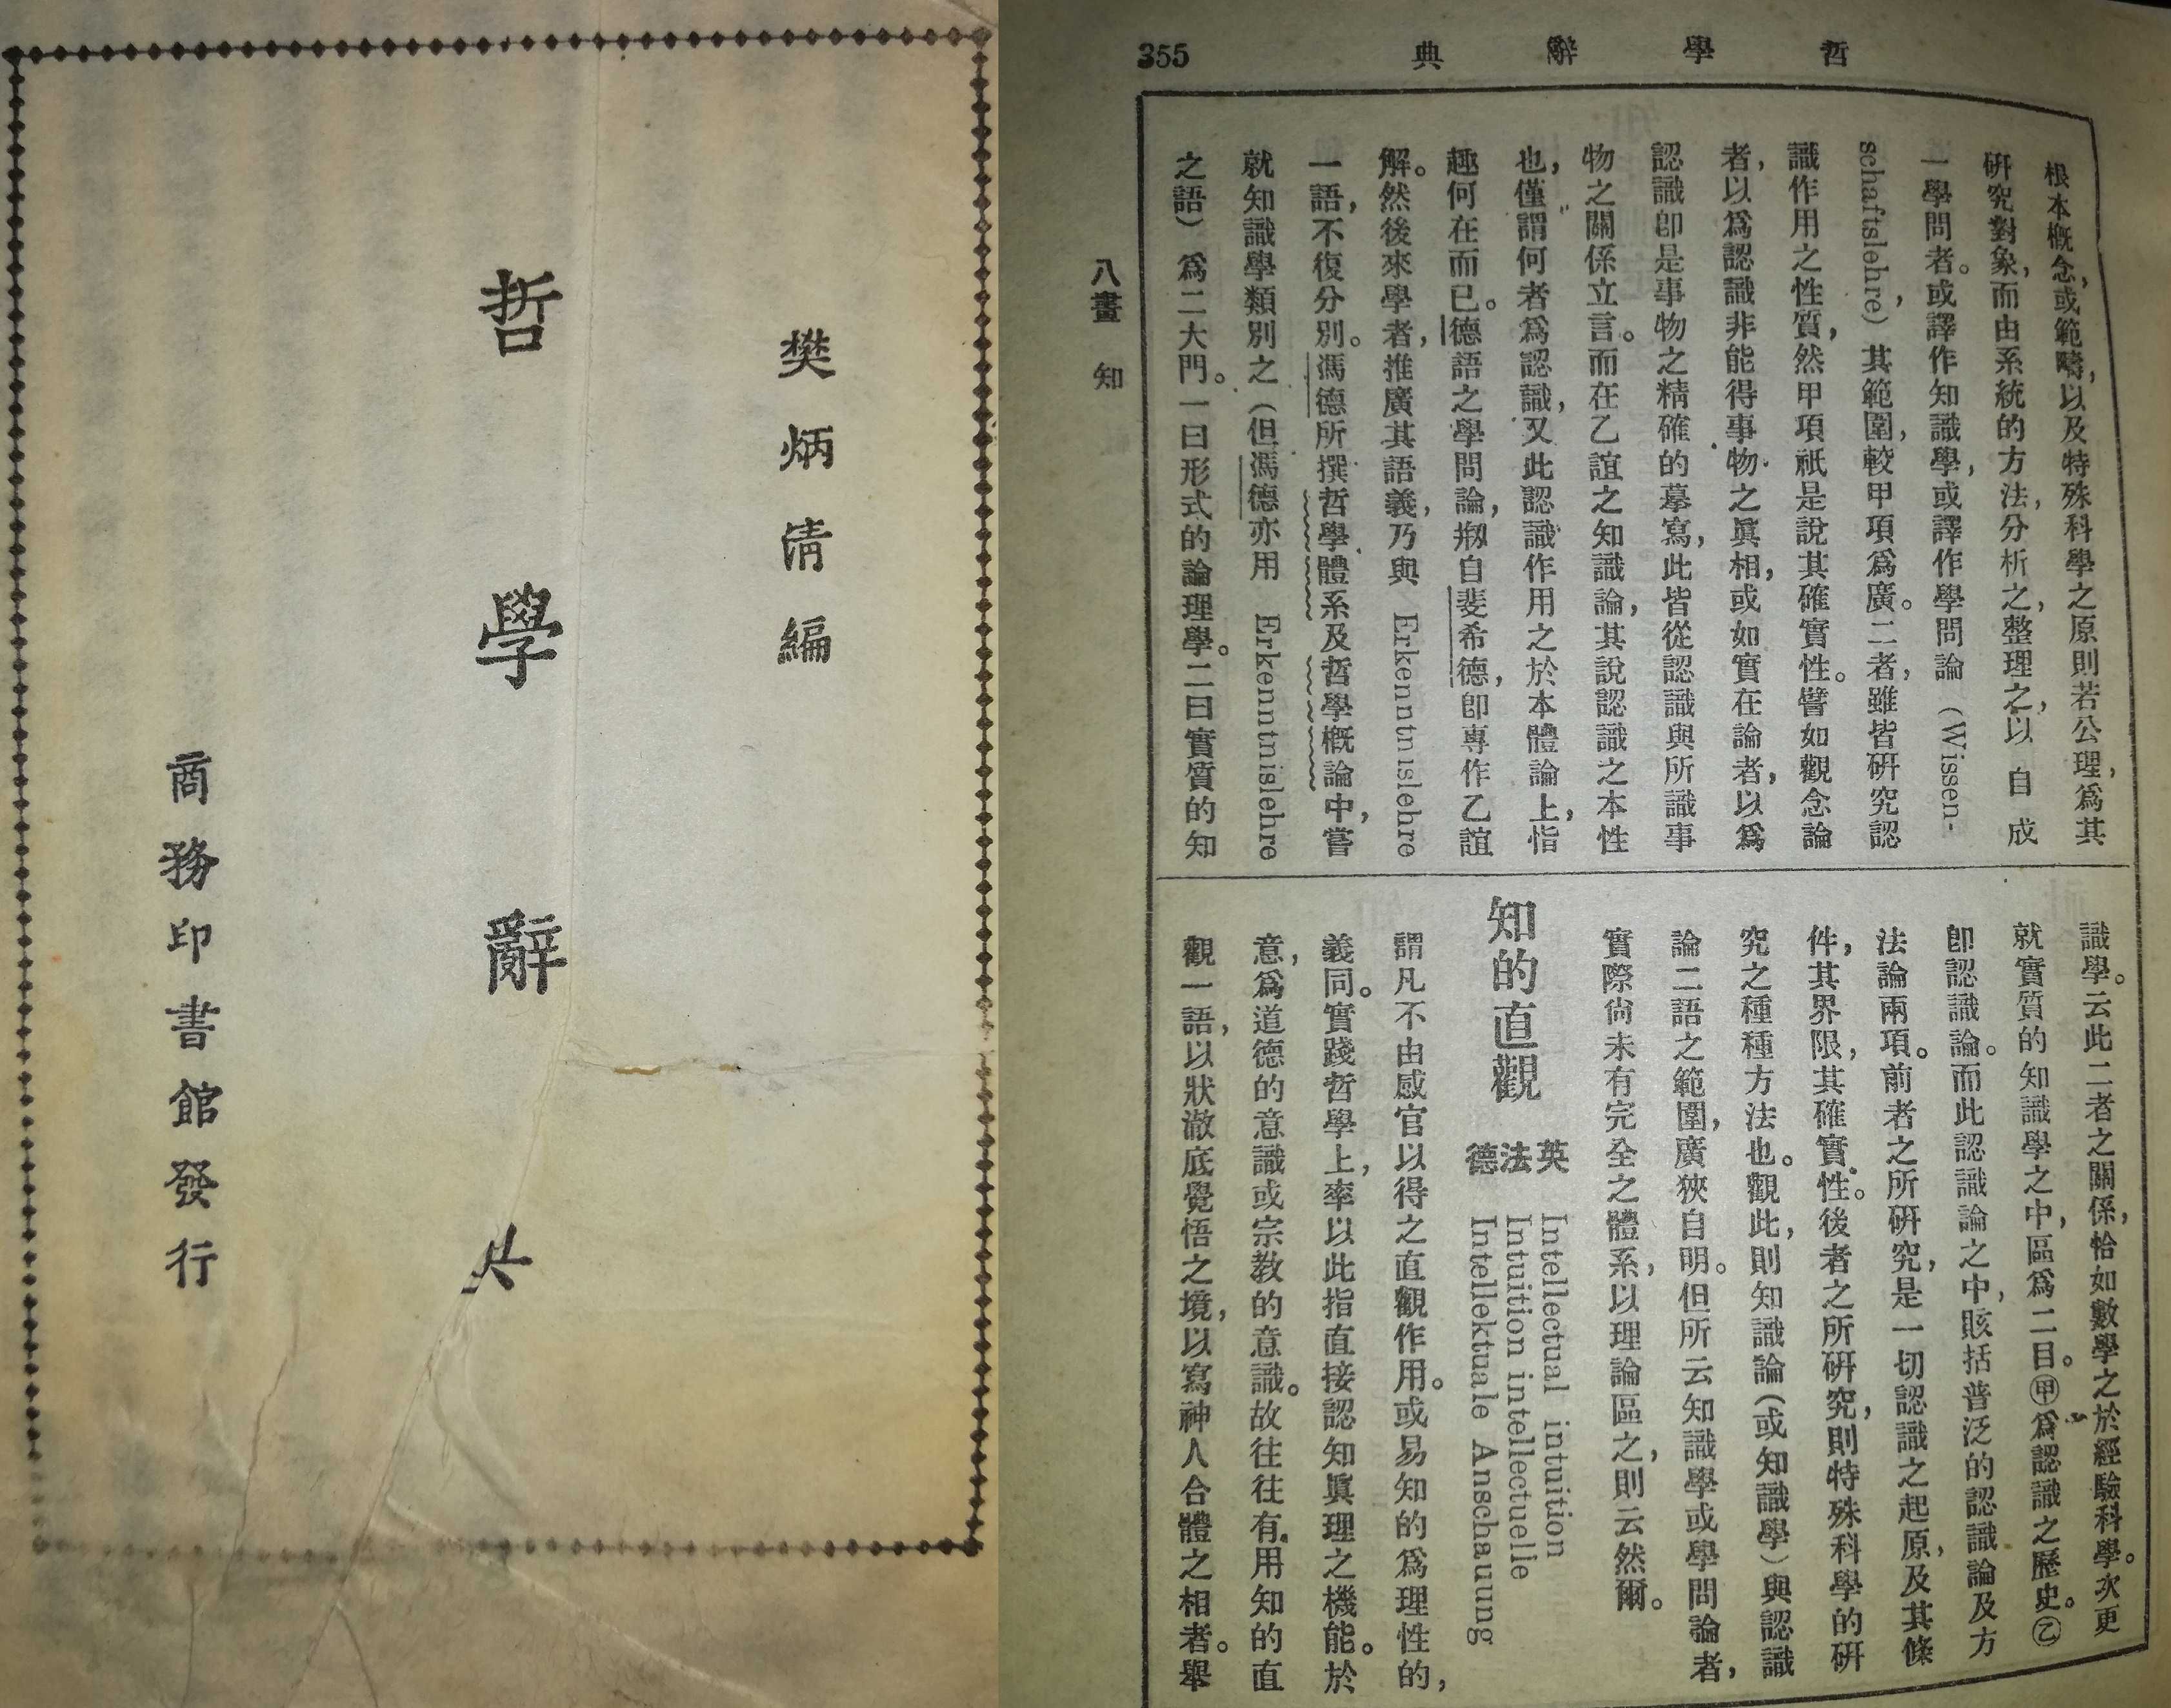 樊炳清編
哲學辭典
商務印書館發行
哲學辭典
355
根本概念,或範疇,以及特殊科學之原則若公理,爲其
研究對象,而由系統的方法,分析之,整理之,以自成
一學問者。或譯作知識學,或譯作學問論(Wissen-
schaftslehre)其範圍,較甲項爲廣。二者,雖皆研究認
識作用之性質,然甲項祇是說其確實性。譬如觀念論
者,以爲認識非能得事物之眞相,或如實在論者,以爲
認識卽是事物之精確的摹寫,此皆從認識與所識事
物之關係立言。而在乙誼之知識論,其說認識之本性
也,僅謂何者爲認識,又此認識作用之於本體論上,指
趣何在而已。德語之學問論,剏自斐希德,卽專作乙誼
解。然後來學者,推廣其語義,乃與 Erkenntnislehre
一語,不復分別。馮德所撰哲學體系及哲學概論中,嘗
就知識學類別之(但馮德亦用 Erkenntnislehre
之語)爲二大門。一曰形式的論理學。二曰實質的知
識學。云此二者之關係,恰如數學之於經驗科學。次更
就實質的知識學之中,區爲二目。㊥爲認識之歷史。㊁
卽認識論。而此認識論之中,賅括普泛的認識論及方
法論兩項。前者之所研究,是一切認識之起原,及其條
件,其界限,其確實性。後者之所研究,則特殊科學的研
究之種種方法也。觀此,則知識論(或知識學)與認識
論二語之範圍,廣狹自明。但所云知識學或學問論者,
實際尙未有完全之體系,以理論區之,則云然爾。
知的直觀
英 Intellectual intuition
法 Intuition intellectuelle
德 Intellektuale Anschauung
謂凡不由感官以得之直觀作用。或易知的爲理性的,
義同。實踐哲學上,率以此指直接認知眞理之機能。於
意,爲道德的意識或宗教的意識。故往往有用知的直
觀一語,以狀澈底覺悟之境,以寫神人合體之相者。舉
八畫 知